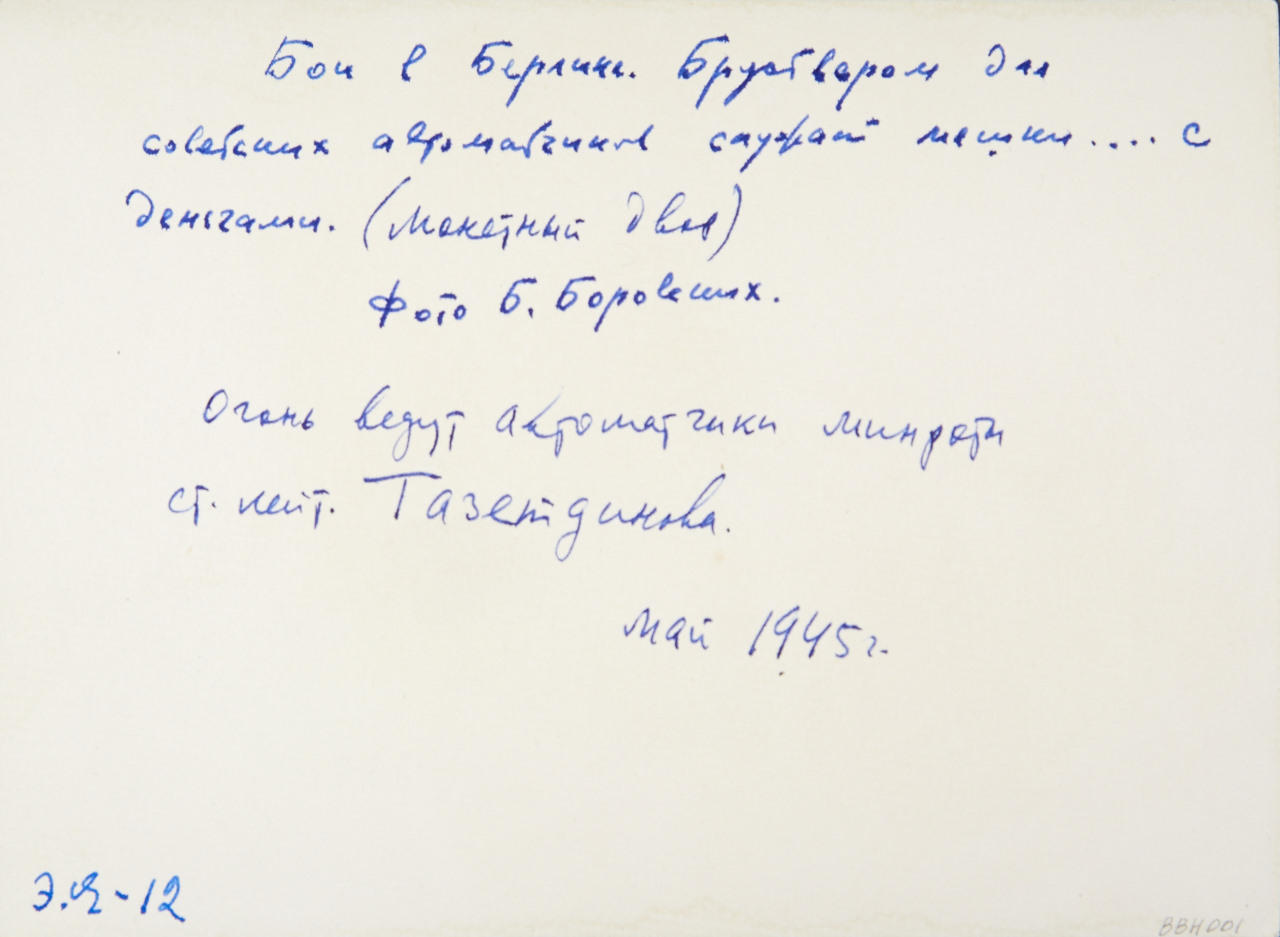 Бои в Берлине. Бруствером для
советских автоматчиков служат мешки.... с
деньгами. (Монетный двор)
Фото Б. Боровских.
Огонь ведут автоматчики минроты
ст. лейт. Тазетдинова.
май 1945г.
Э.Я-12
ВВН001